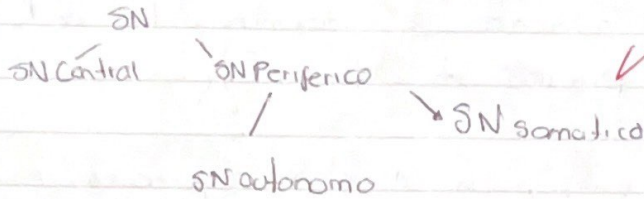 SN
SN Central
SN Periferico
SN somatico
SN autonomo